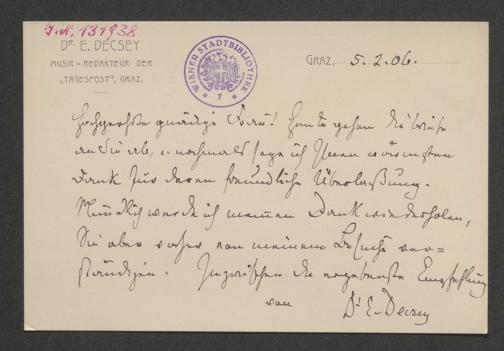 I.N. 131938
DR. E. DÉCSEY
MUSIK-REDAKTEUR DER
„TAGESPOST“, GRAZ.
WIENER STADTBIBLIOTHEK
7
GRAZ, 5.2.06.
Hochgeehrte gnädige Frau! Heute gehen die Briefe
an Sie ab, u. nochmals sage ich Ihnen wärmsten
Dank für deren freundliche Überlaßung.
Mündlich werde ich meinen Dank wiederholen,
Sie aber vorher von meinem Besuche ver-
ständigen. Inzwischen die ergebenste Empfehlung
von Dr E. Decsey